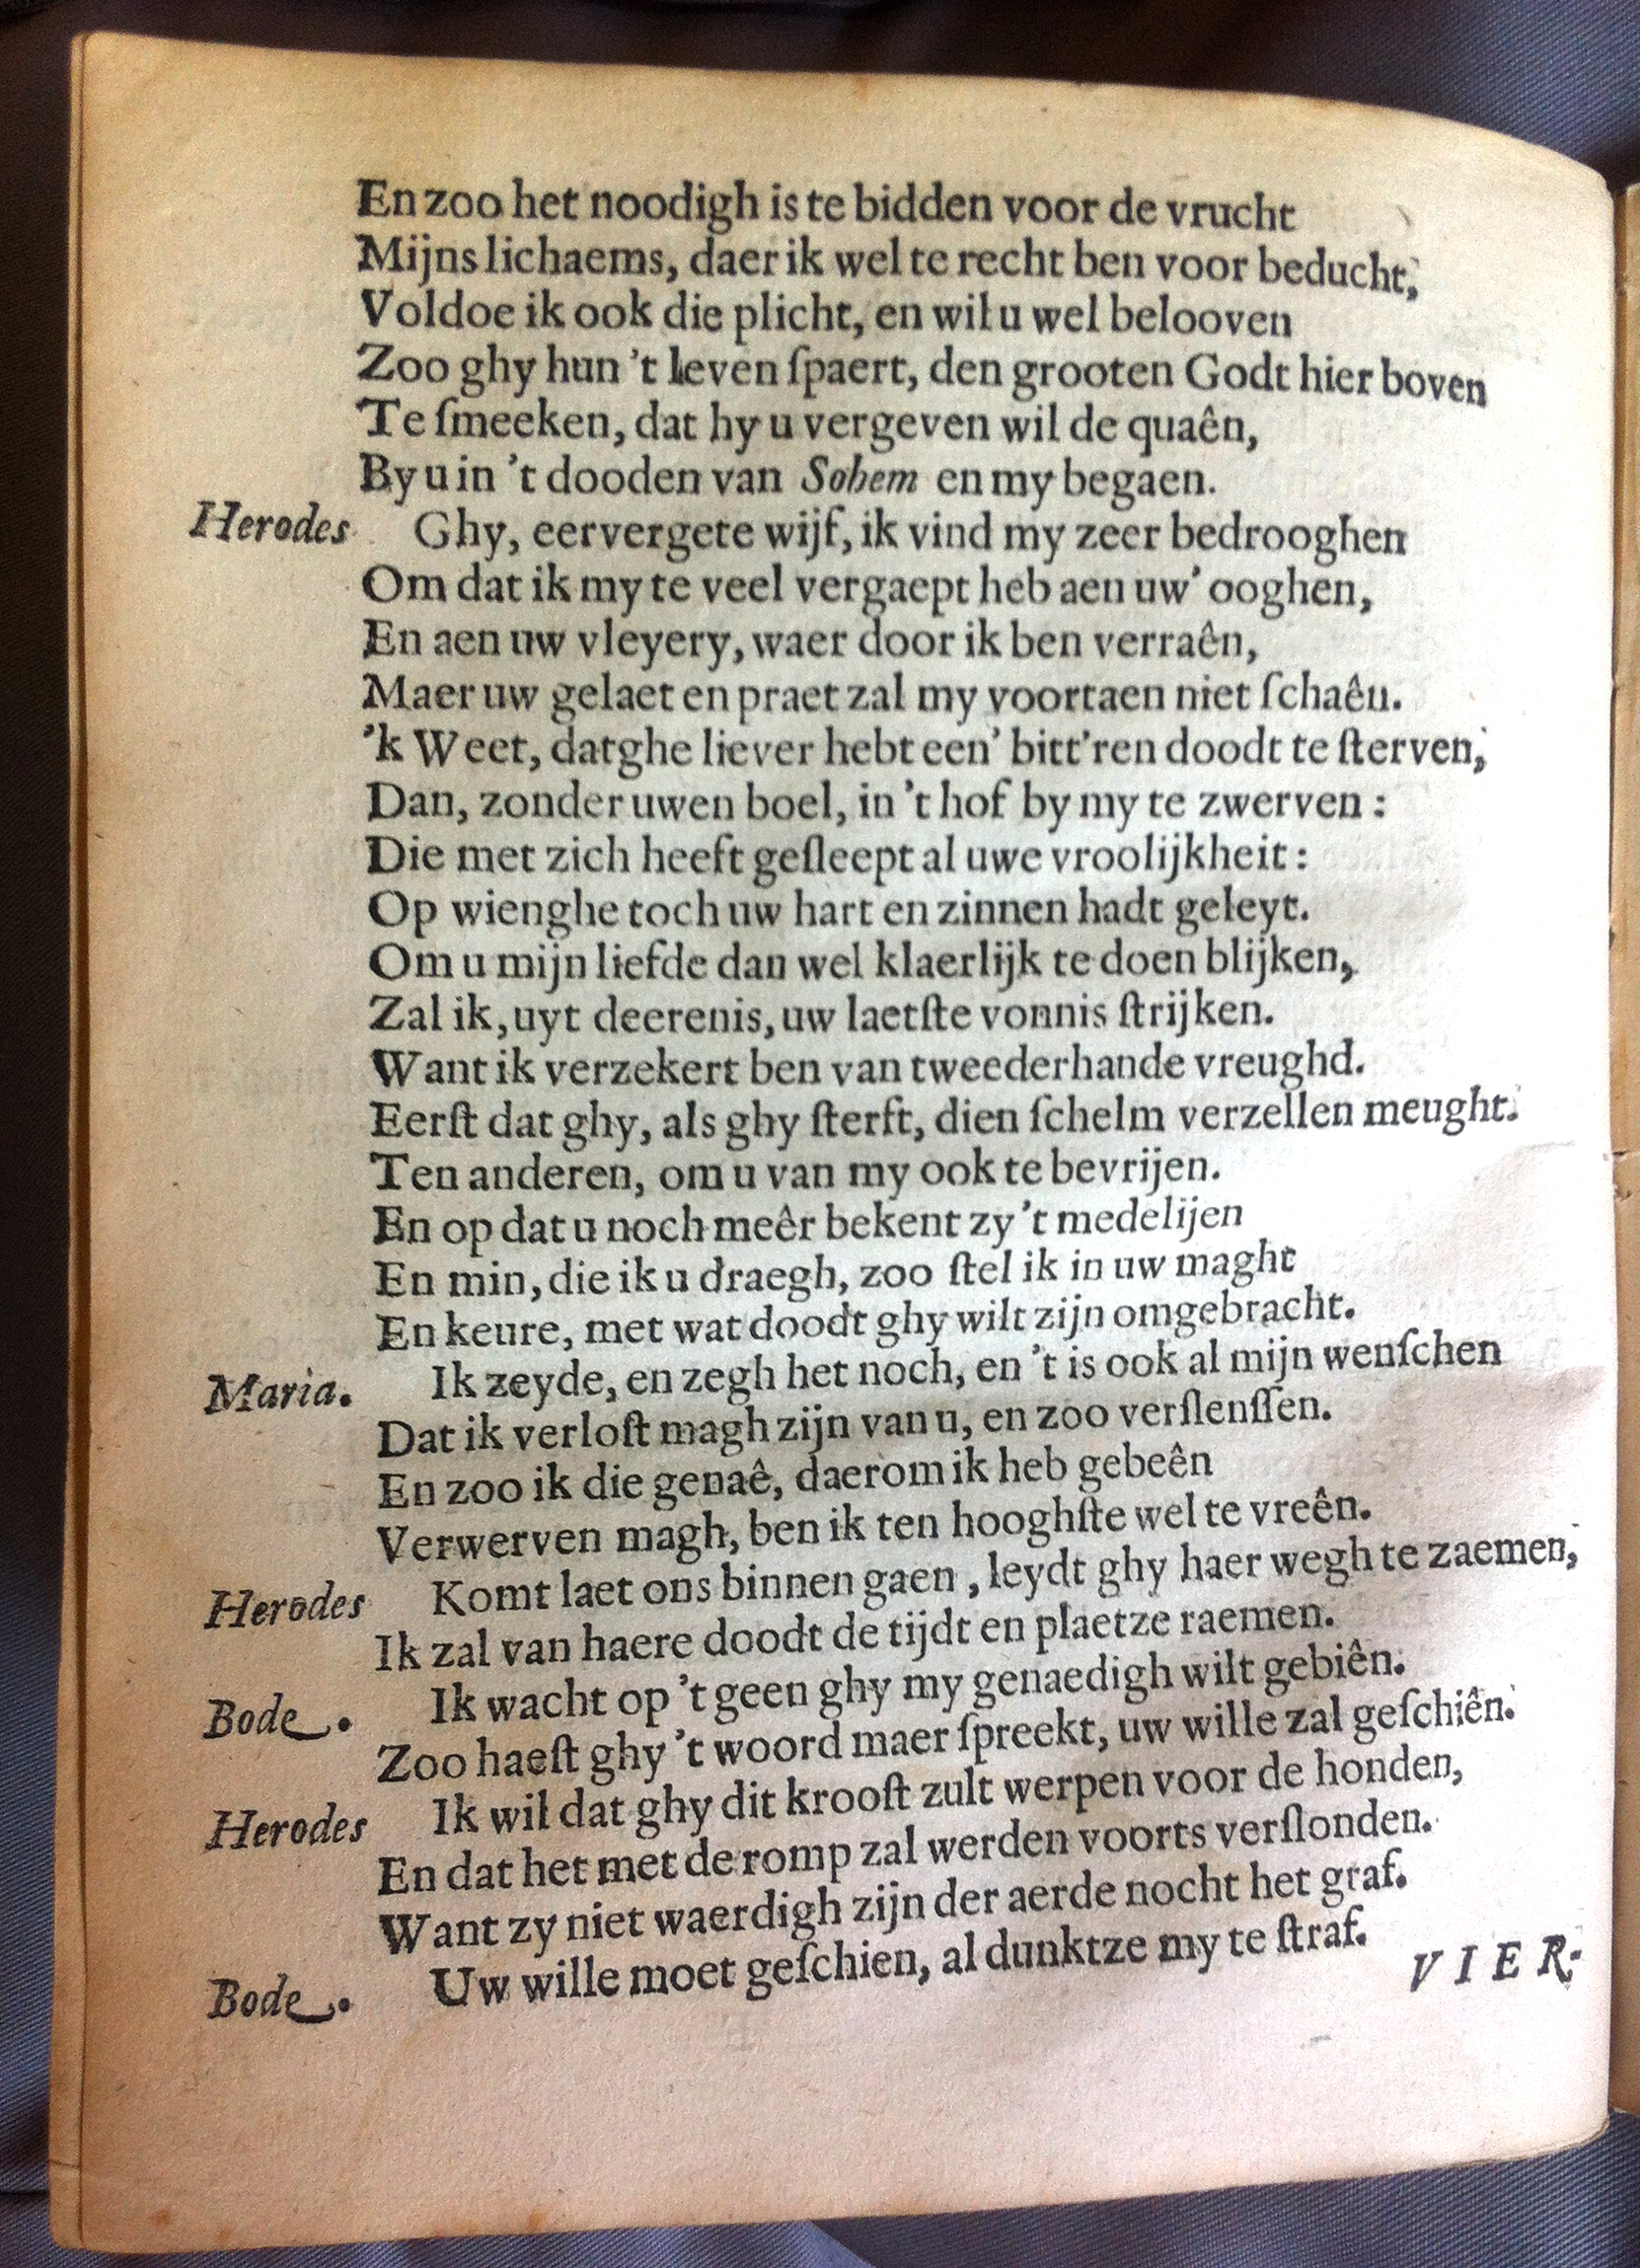 En zoo het noodigh is te bidden voor de vrucht
Mijns lichaems, daer ik wel te recht ben voor beducht,
Voldoe ik ook die plicht, en wil u wel belooven
Zoo ghy hun 't leven ſpaert, den grooten Godt hier boven
Te ſmeeken, dat hy u vergeven wil de quaên,
By u in 't dooden van Sohem en my begaen.
Herodes Ghy, eervergete wijf, ik vind my zeer bedrooghen
Om dat ik my te veel vergaept heb aen uw' ooghen,
En aen uw vleyery, waer door ik ben verraên,
Maer uw gelaet en praet zal my voortaen niet ſchaêu.
'k Weet, datghe liever hebt een' bitt'ren doodt te ſterven,
Dan, zonder uwen boel, in 't hof by my te zwerven:
Die met zich heeft geſleept al uwe vroolijkheit:
Op wienghe toch uw hart en zinnen hadt geleyt.
Om u mijn liefde dan wel klaerlijk te doen blijken,
Zal ik, uyt deerenis, uw laetſte vonnis ſtrijken.
Want ik verzekert ben van tweederhande vreughd.
Eerſt dat ghy, als ghy ſterft, dien ſchelm verzellen meught.
Ten anderen, om u van my ook te bevrijen.
En op dat u noch meêr bekent zy 't medelijen
En min, die ik u draegh, zoo ſtel ik in uw maght
En keure, met wat doodt ghy wilt zijn omgebracht.
Maria. Ik zeyde, en zegh het noch, en 't is ook al mijn wenſchen
Dat ik verloſt magh zijn van u, en zoo verſlenſſen.
En zoo ik die genaê, daerom ik heb gebeên
Verwerven magh, ben ik ten hooghſte wel te vreên.
Herodes Komt laet ons binnen gaen, leydt ghy haer wegh te zaemen,
Ik zal van haere doodt de tijdt en plaetze raemen.
Bode. Ik wacht op 't geen ghy my genaedigh wilt gebiên.
Zoo haeſt ghy 't woord maer ſpreekt, uw wille zal geſchiên.
Herodes Ik wil dat ghy dit krooſt zult werpen voor de honden,
En dat het met de romp zal werden voorts verſlonden.
Want zy niet waerdigh zijn der aerde nocht het graf.
Bode. Uw wille moet geſchien, al dunktze my te ſtraf.
VIER-